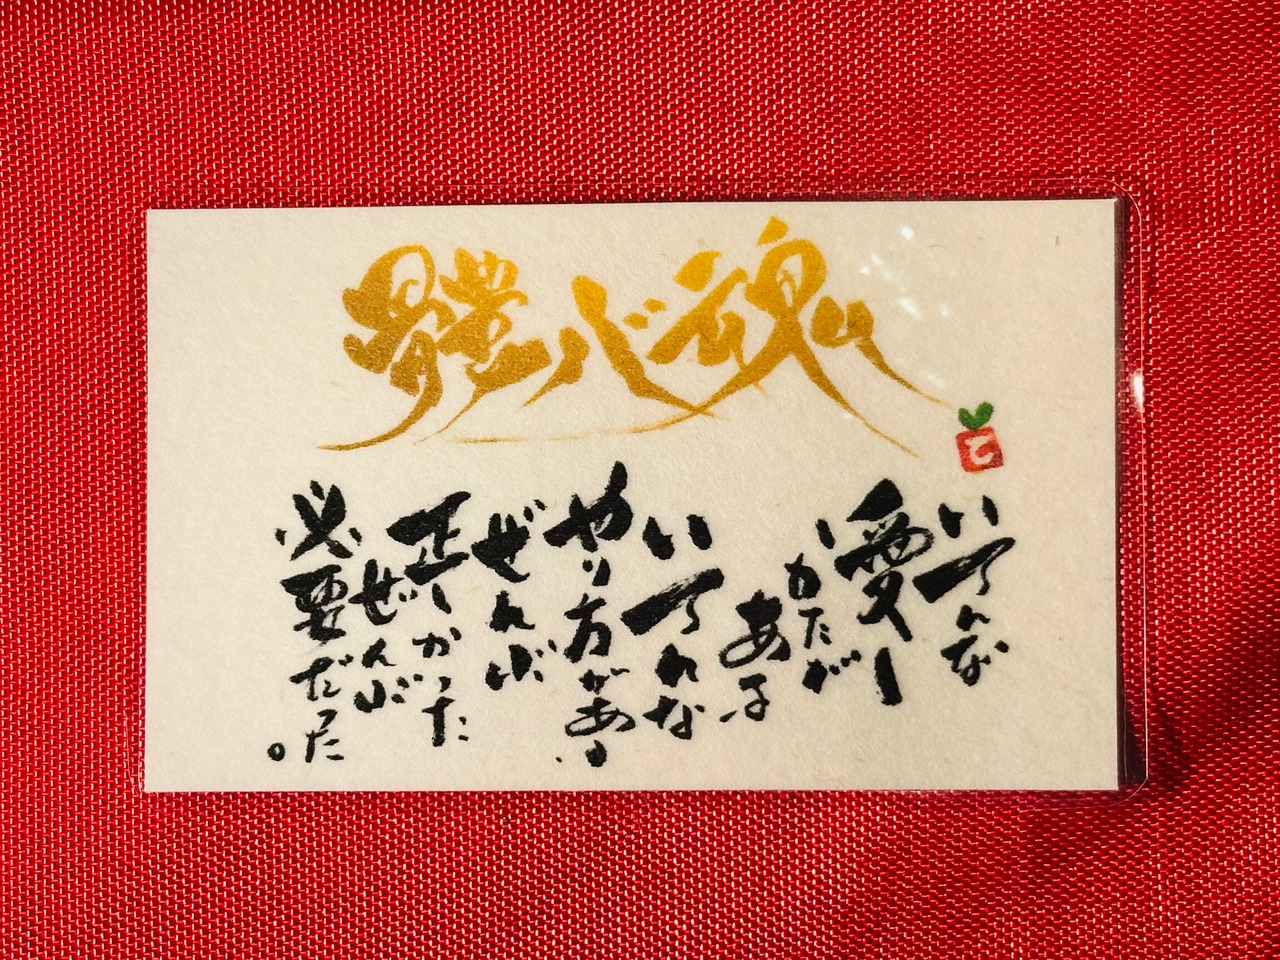 體心魂
と
いろんな
愛し
かたが
ある
いろんな
やり方がある.
ぜんぶ
正しかった
ぜんぶ
必要だった。